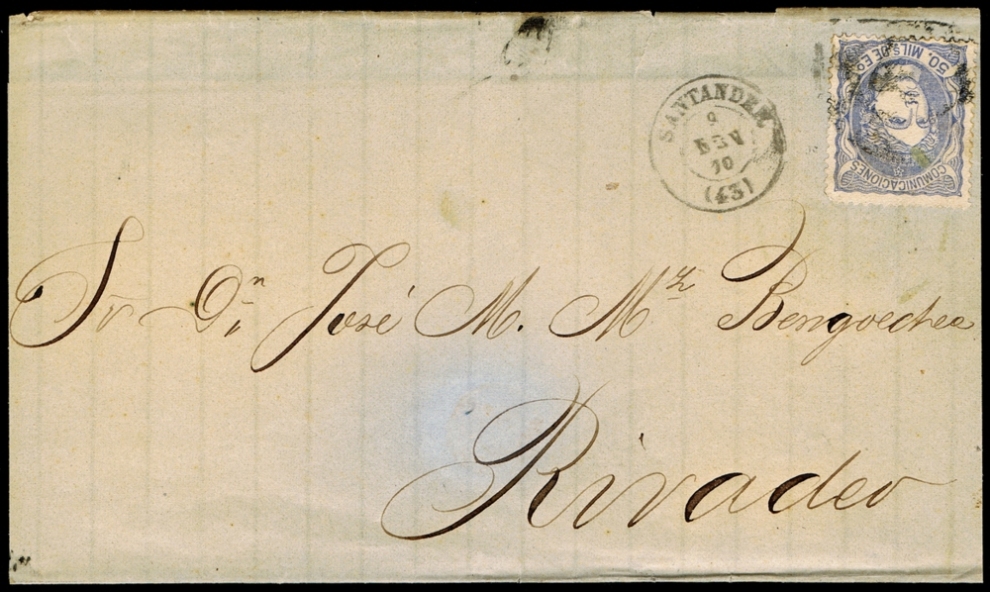 SANTANDER
9
NOV
70
(43)
50. MILS DE E
COMUNICACIONES
Sr Dn José M. Mz Bengoechea
Rivadeo